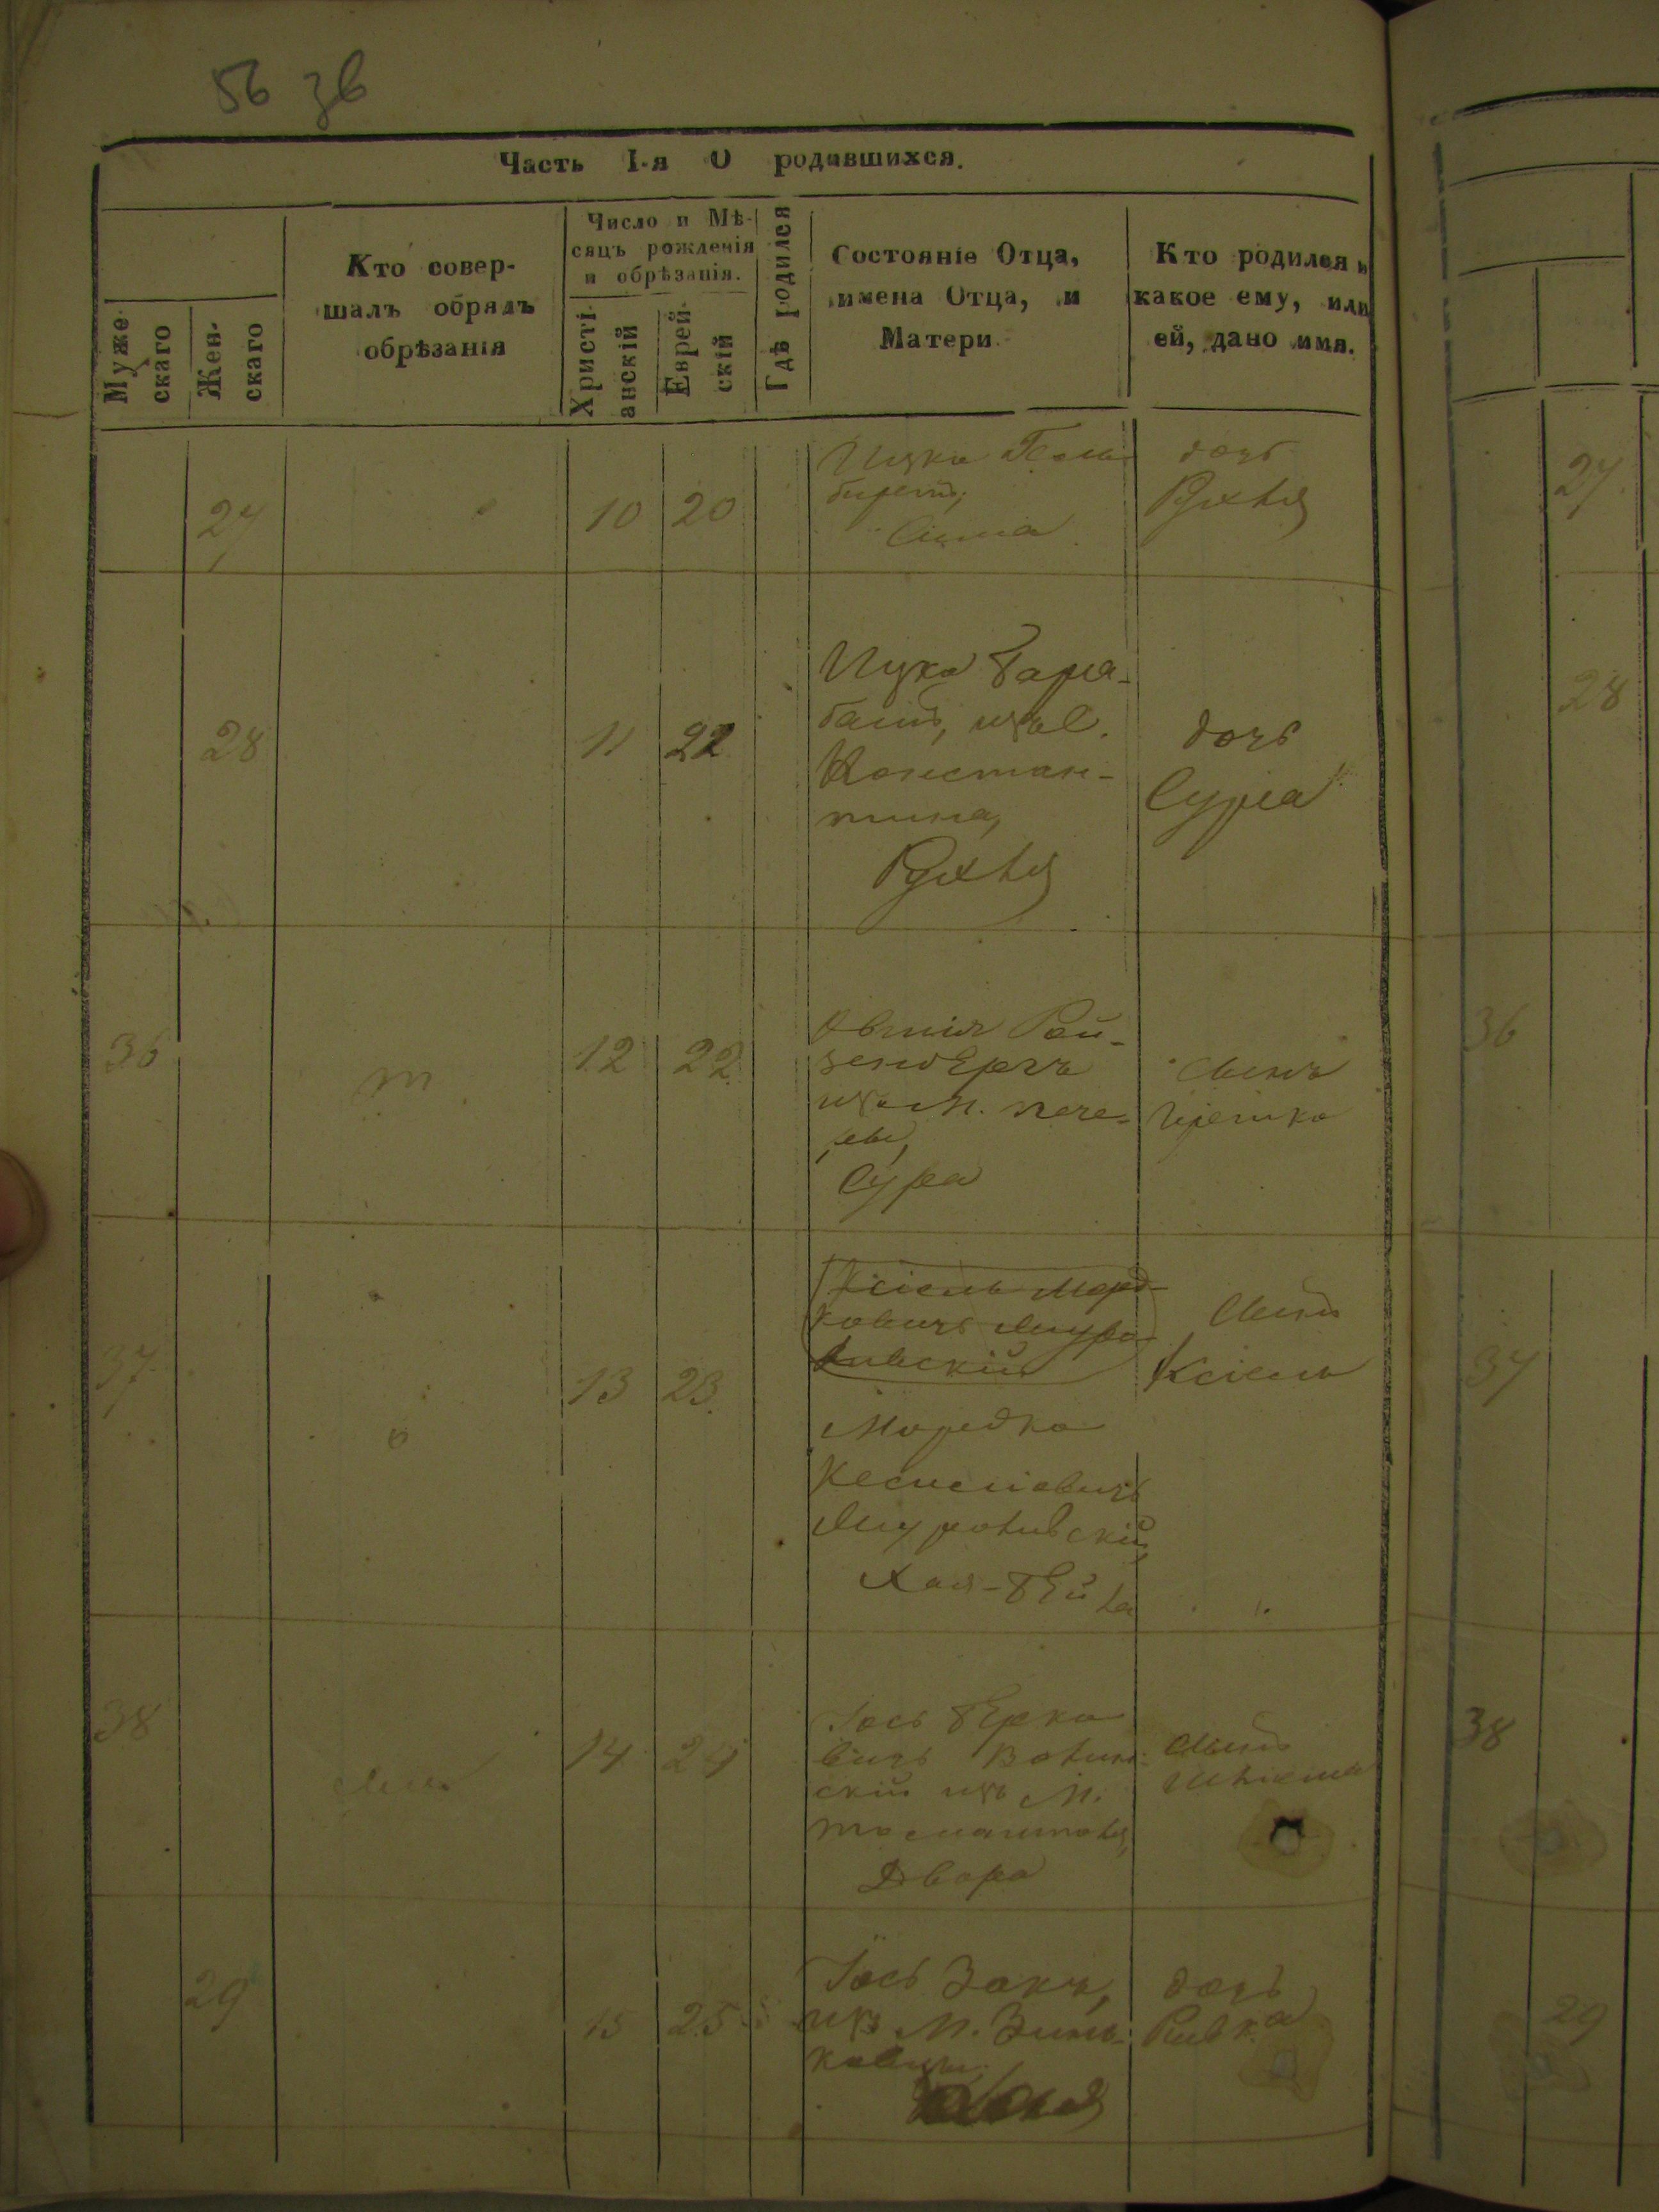 56 зв
Часть I-я О родившихся.
Муже-
скаго
Жен-
скаго
Кто совер-
шалъ обрядъ
обрѣзанія
Число и Мѣ-
сяцъ рожденія
и обрѣзанія.
Христі-
анскій
Еврей-
скій
Гдѣ родился
Состояніе Отца,
имена Отца, и
Матери.
Кто родился и
какое ему, или
ей, дано имя.
27
10
20
Ицко
Сима
дочь
Рухля
27
28
11
22
Ицко Бара-
банъ, изъ с.
Констан-
тина,
Рухля
дочь
Сура
28
36
12
22
Овшія Рой-
зенбергъ
изъ м. Пече-
ры,
Сура
сынъ
Гершко
36
37
13
23
Ксіель Морд-
ковичъ
Мордко
Хая-Бейла
сынъ
Ксіель
37
38
14
24
Іось Берко
вичъ
скій изъ м.
Томашполя,
Двора
сынъ
38
29
15
25
Іось Закъ,
изъ м. Зинь-
ковцы
дочь
Ривка
29